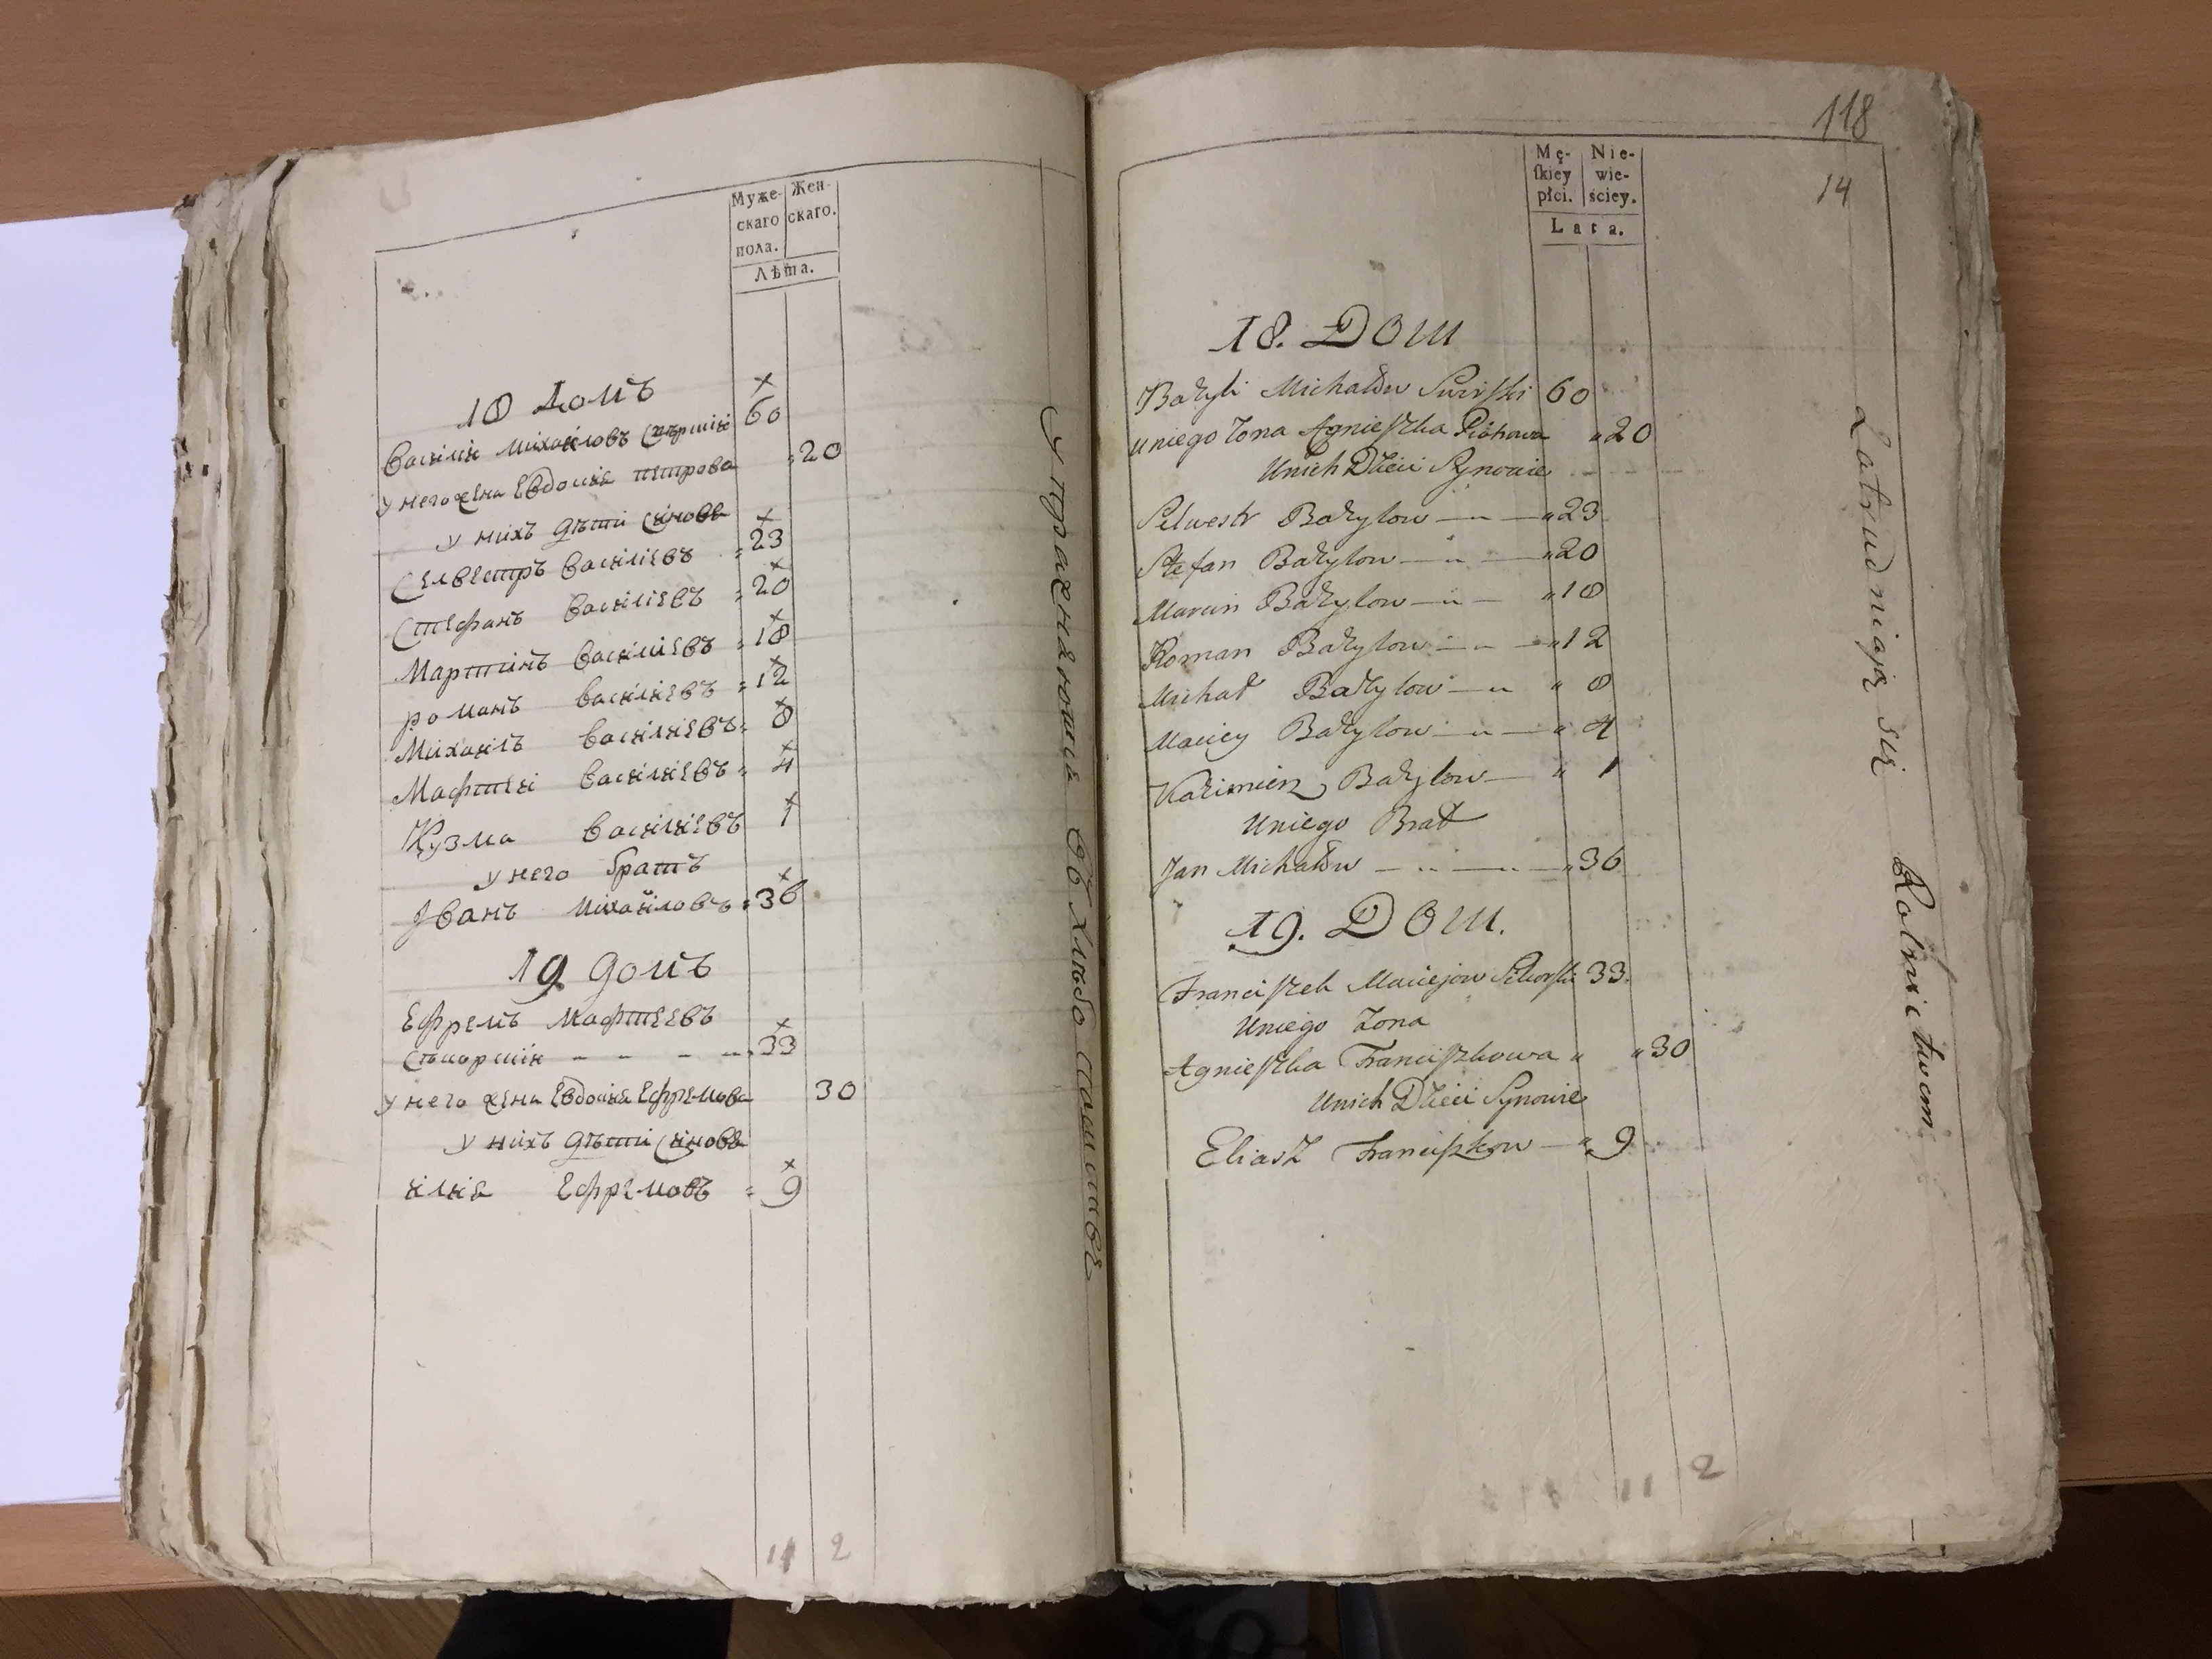 Муже-
скаго
пола.
Жен-
скаго.
Лѣта.
18 Домъ
Василій Михайловъ 60
У него жена Евдокія Петрова 20
у нихъ дѣти Синове
Сельвестръ Василіевъ 23
Стефанъ Василіевъ 20
Мартинъ Василіевъ 18
романъ василіевъ 12
Михаилъ василіевъ 8
Мафтеи Василіевъ 4
Кузма Василіевъ 1
у него братъ
Іванъ Михайловъ 36
19 домъ
Ефремъ Мафтеевъ
33
у него жена Евдокія Ефремова 30
у нихъ дѣти Синове
илия Ефремовъ 9
11 2
Упражняютца въ Хлѣбо
118
14
Mę-
skiey
płci.
Nie-
wie-
ściey.
Lata.
18. Dom
Bazyli Michałow 60
Uniego Zona Agnieszka Piotrowa 20
Unich Dzieci Synowie
Selwestr Bazylow 23
Stefan Bazylow 20
Marcin Bazylow 18
Roman Bazylow 12
Michał Bazylow 8
Maciey Bazylow 4
Kazimierz Bazylow 1
Uniego Brat
Jan Michałow 36
19. Dom.
Franciszek Maciejow 33
Uniego Zona
Agnieszka Franciszkowa 30
Unich Dzieci Synowie
Eliasz Franciszkow 9
11 2
Zatrudniają się Rolnictwem